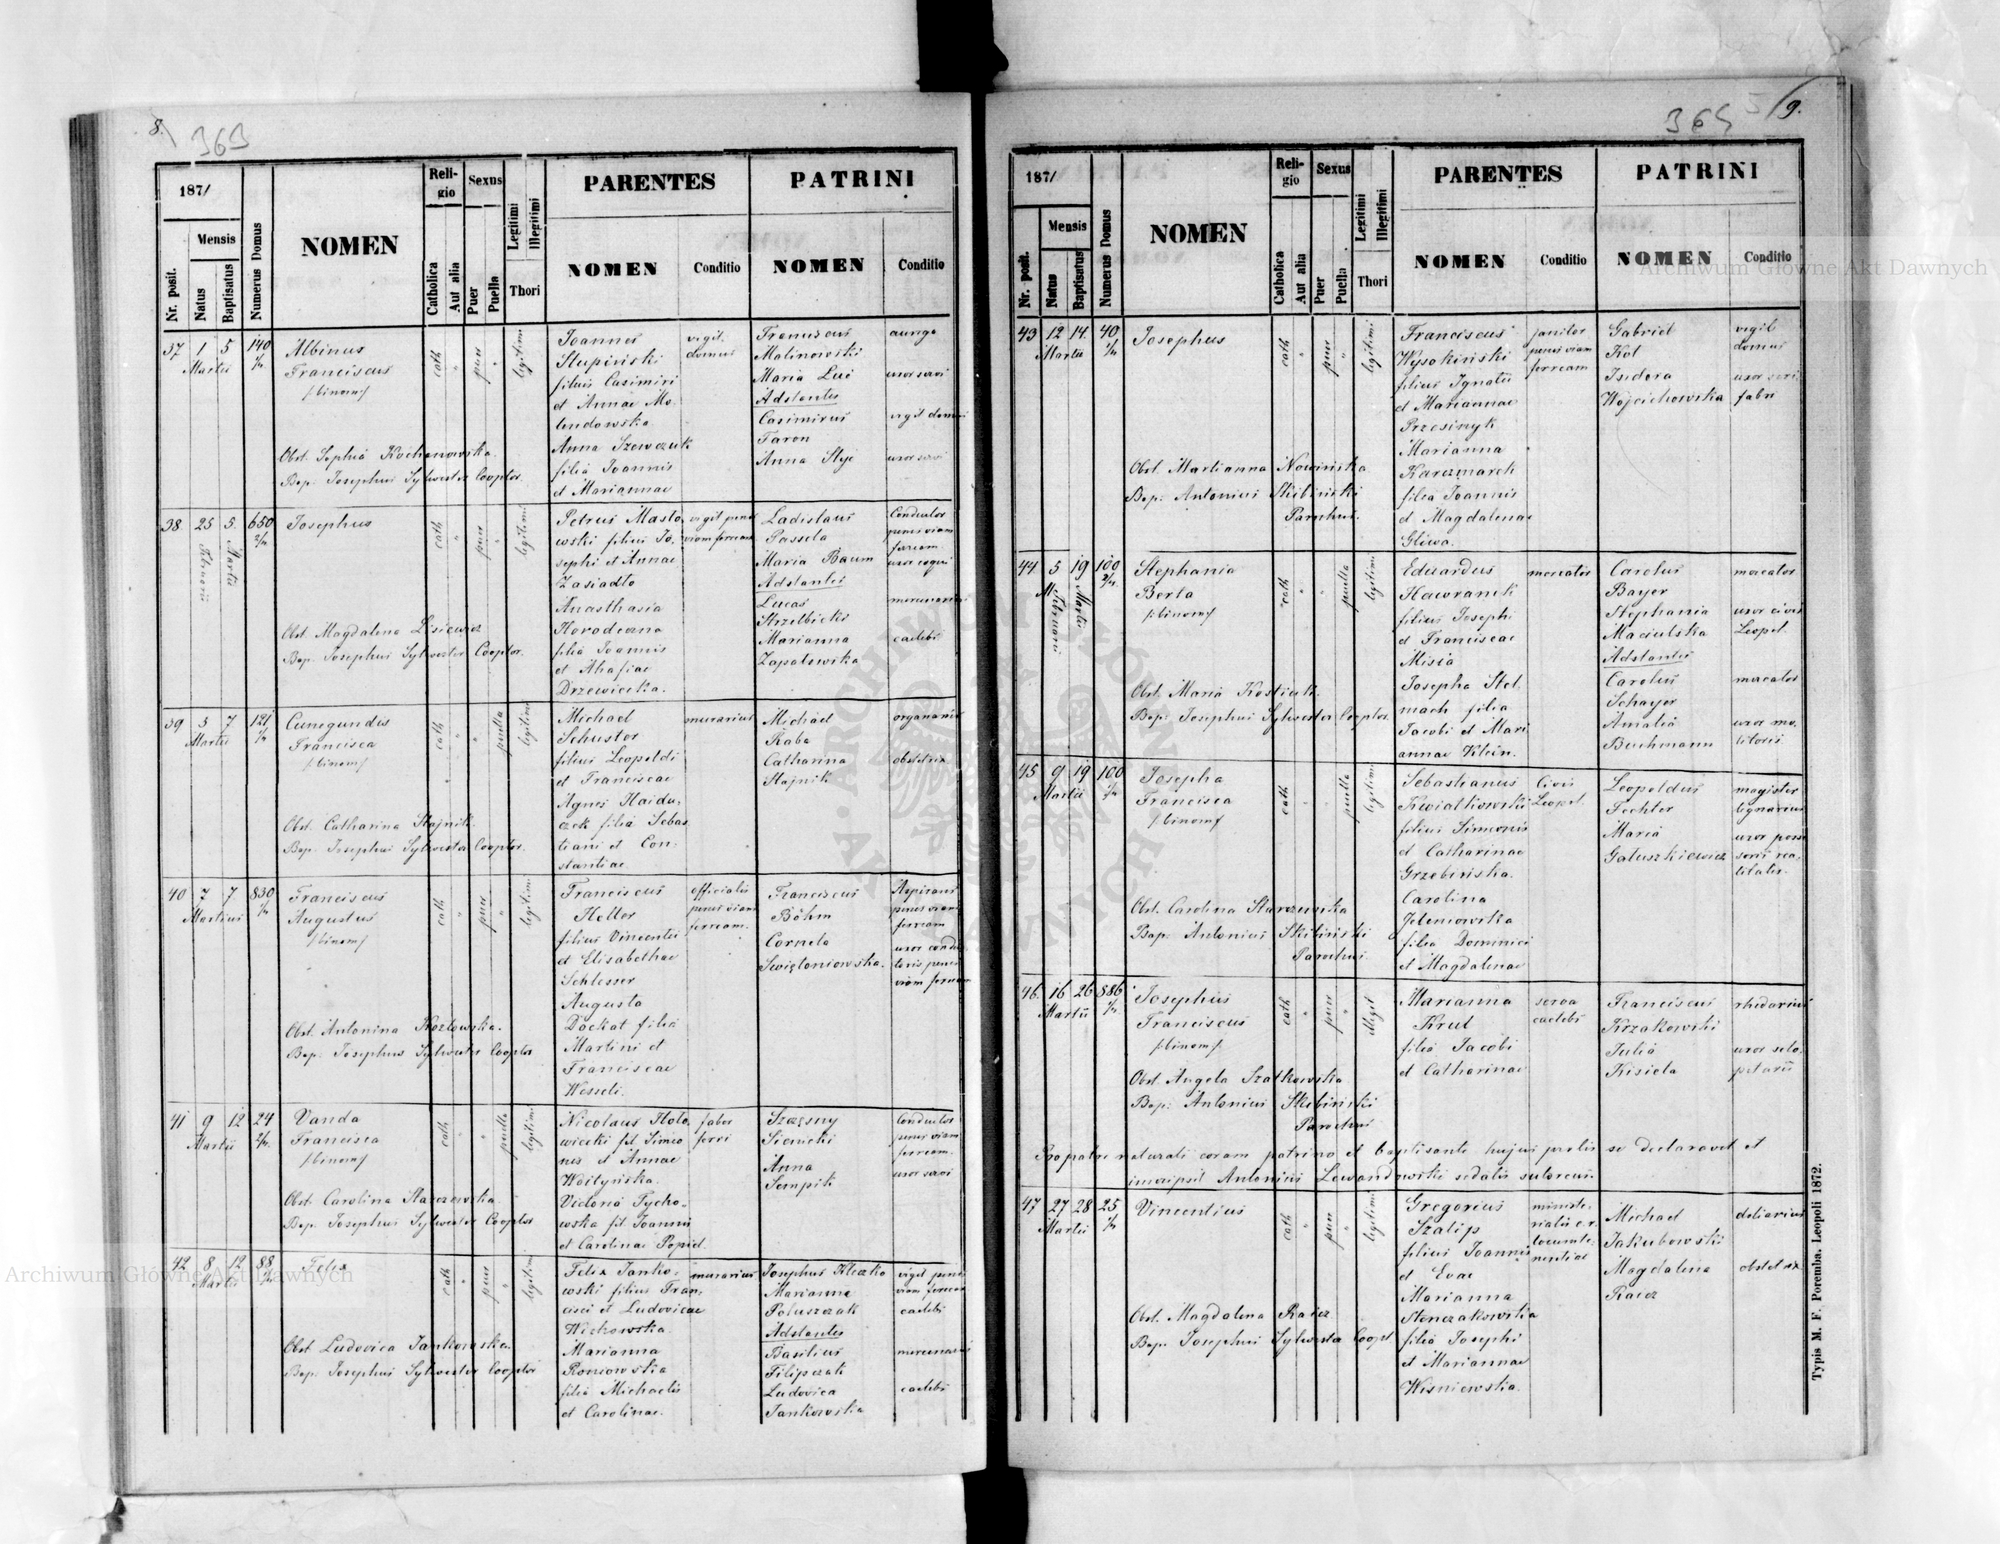 8.
363
187/
Nr. posit.
Mensis
Natus
Baptisatus
Numerus Domus
NOMEN
Religio
Catholica
Aut alia
Sexus
Puer
Puella
Legitimi
Illegitimi
Thori
PARENTES
NOMEN
Conditio
PATRINI
NOMEN
Conditio
37 1 5 140
Martii
Albinus
Franciscus
/:binom:/
Obst. Sophia Kochanowska.
Bap: Josephus Sylwester Cooptor.
cath
puer
legitimi
Joannes
Stupiński
filius Casimiri
et Annae Mo-
lendowska
Anna Szewczuk
filia Joannis
et Mariannae
vigil
domus
Franciscus
Malinowski
Maria Lui
Adstantes
Casimirus
Faron
Anna Styé
auriga
uxor servi
vigil domus
uxor servi
38 25 5. 650
Februarii
Martii
Josephus
Obst. Magdalena Lisiewicz
Bap. Josephus Sylwester Cooptor.
cath
puer
legitimi
Petrus Masło-
wski filius Jo-
sephi et Annae
Zasiadło
Anasthasia
Horodezna
filia Joannis
et Ahafiae
Drzewiecka.
vigil penes
viam ferream
Ladislaus
Passela
Maria Baum
Adstantes
Lucas
Strzelbicki
Marianna
Zapałowska
Conductor
penes viam
ferream
uxor coqui
mercenarius
caelebs
39 3 7 121
Martii
Cunegundis
Francisca
/:binom:/
Obst. Catharina Stajnik.
Bap. Josephus Sylwester Cooptor.
cath
puella
legitimi
Michael
Schuster
filius Leopoldi
et Franciscae
Agnes Haidu-
czek filia Sebas
tiani et Con-
stantiae
murarius
Michael
Raba
Catharina
Stajnik
organarius
obstetrix
40 7 7 830
Martius
Franciscus
Augustus
/:binom:/
Obst. Antonina Kozłowska.
Bap: Josephus Sylwester Cooptor
cath
puer
legitimi
Franciscus
Heller
filius Vincentii
et Elisabethae
Schlesser
Augusta
Dockat filia
Martini et
Franciscae
Wesseli.
officialis
penes viam
ferream.
Franciscus
Böhm
Cornela
Święloniowska.
Aspirans
penes viam
ferream
uxor conduc
toris penes
viam ferream
41 9 12 24
Martii
Vanda
Francisca
/:binom:/
Obst. Carolina Starczewska.
Bap: Josephus Sylwester Cooptor
cath
puella
legitimi
Nicolaus Hoło-
wiecki fil. Simeo
nis et Annae
Wolityńska.
Victoria Tycho-
wska fil. Joannis
et Carolinae Popiel.
faber
ferri
Szczęsny
Sienicki
Anna
Sempik
Conductor
penes viam
ferream.
uxor servi
42 8 12 88
Martii
Felix
Obst. Ludovica Jankowska.
Bap: Josephus Sylwester Cooptor
cath
puer
legitimi
Felix Janko-
wski filius Fran-
cisci et Ludovicae
Wichowska.
Marianna
Roniowska
filia Michaelis
et Carolinae.
murarius
Josephus Kleczko
Marianna
Poluszczak
Adstantes
Basilius
Filipczak
Ludovica
Jankowska
vigil penes
viam ferream
caelebs
mercenarius
caelebs
365
9.
187/
Nr. posit.
Mensis
Natus
Baptisatus
Numerus Domus
NOMEN
Religio
Catholica
Aut alia
Sexus
Puer
Puella
Legitimi
Illegitimi
Thori
PARENTES
NOMEN
Conditio
PATRINI
NOMEN
Conditio
43 12 14. 40
Martii
Josephus
Obst. Martianna Nowińska
Bap: Antonius Skibiński
Parochus.
cath
puer
legitimi
Franciscus
Wysokiński
filius Ignatii
et Mariannae
Przesinyk
Marianna
Karczmarek
filia Joannis
et Magdalenae
Gliwa.
janitor
penes viam
ferream
Gabriel
Kot
Isidora
Wojciechowska
vigil
domus
uxor seri
fabri
44. 5 19 100
Februarii
Martii
Stephania
Berta
/:binom:/
Obst. Maria Kostiuk.
Bap: Josephus Sylwester Cooptor.
cath
puella
legitimi
Eduardus
Hawranek
filius Josephi
et Franciscae
Misia
Josepha Stel-
mach filia
Jacobi et Mari
annae Klein.
mercator
Carolus
Bayer
Stephania
Maciulska
Adstantes
Carolus
Schayer
Amalia
Buchmann
mercator
uxor civis
Leopol.
mercator
uxor mo-
litoris.
45 9 19 100
Martii
Josepha
Francisca
/:binom:/
Obst. Carolina Starczewska
Bap: Antonius Skibiński
Parochus.
cath
puella
legitimi
Sebastianus
Kwiatkowski
filius Simonis
et Catharinae
Grzebińska.
Carolina
Jeleniowska
filia Dominici
et Magdalenae
Civis
Leopol.
Leopoldus
Fechter
Maria
Gałuszkiewicz
magister
lignarius
uxor posse
soris rea-
litatis.
46. 16 26 886
Martii
Josephus
Franciscus
/:binom:/
Obst. Angela Szatkowska
Bap: Antonius Skibiński
Parochus
cath
puer
illegit
Marianna
Krul
filia Jacobi
et Catharinae
serva
caelebs
Franciscus
Krzakowski
Julia
Kisiela
rhedarius
uxor selo-
petarii
Pro patre naturali coram patrino et baptisante hujus prolis se declaravit et
inscripsit Antonius Lewandowski sodalis sutoreus.
47 27 28 25
Martii
Vincentius
Obst. Magdalena Racz
Bap: Josephus Sylwester Coopt.
cath
puer
legitimi
Gregorius
Szalip
filius Joannis
et Evae
Marianna
Stenczakowska
filia Josephi
et Mariannae
Wiśniewska.
ministe-
rialis c.r.
locumte-
nentiae
Michael
Jakubowski
Magdalena
Racz
doliarius
obstetrix
Typis M. F. Poremba. Leopoli 1872.
Archiwum Główne Akt Dawnych
Archiwum Główne Akt Dawnych